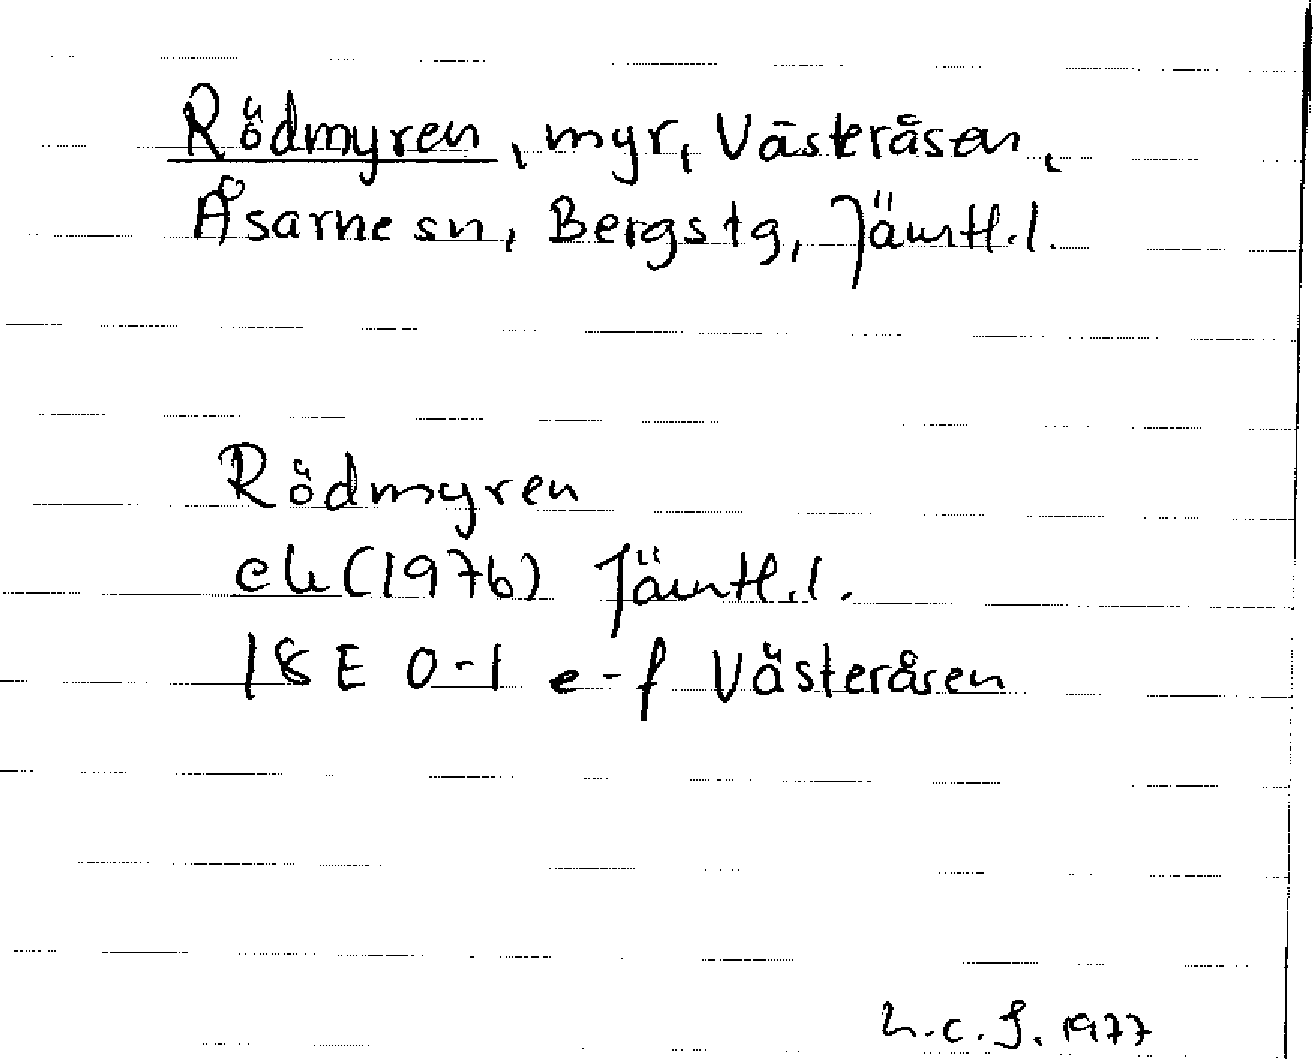 Rödmyren, myr, Västeråsen,
Åsarne sn, Bergs tg, Jämtl.l.
Rödmyren
ek (1976) Jämtl.l.
18E 0-1 e-f Västeråsen
1977